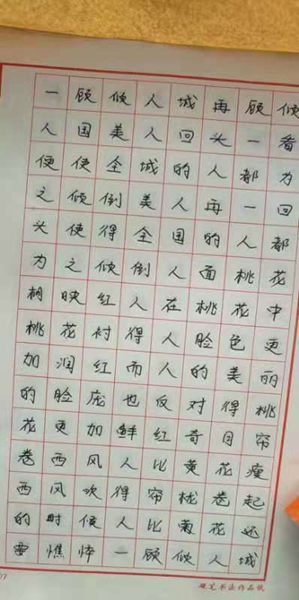 一顾倾人城再顾倾
人国美人回头一看
便使全城的人都为
之倾倒美人再一回
头使得全国的人都
为之倾倒人面桃花
相映红人在桃花中
桃花衬得人脸色更
加润红而人的美丽
的脸庞也反对得桃
花更加鲜红奇目帘
卷西风人比黄花瘦
西风吹得帘栊卷起
的时候人比菊花还
要憔悴一顾倾人城
硬笔书法作品纸